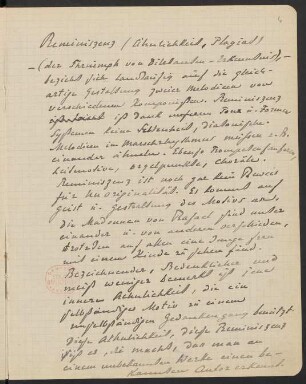 Reminiszenz (Ähnlichkeit, Plagiat)
— (der Triumph von Dilettanten-Erkenntnis),
bezieht sich landläufig auf die gleich-
artige Gestaltung zweier Melodien von
verschiedenen Komponisten. Reminiszenz
ist nach unserem Ton u. Formen
System keine Seltenheit, diatonische
Melodien im Marschrhythmus müssen z. B.
einander ähneln. Ebenso Trompetenfanfare,
Orgelpunkte, Choräle.
Reminiszenz ist noch gar kein Beweis
für Unoriginalität. Es kommt auf
Geist u. Gestaltung des Motivs an,
die Madonnen von Rafael sind unter
einander u. von anderen verschieden,
trotzdem auf allen eine junge Frau
mit einem Kinde zu sehen sind.
Bezeichnender, Bedenklicher und
meist weniger bemerkt ist jene
innere Ähnlichkeit, die ein
selbständiges Motiv zu einem
unselbständigen Gedankengang benützt.
Diese Ähnlichkeit, diese Reminiszenz
ist es, die macht, das man an
einem unbekannten Werke einen be-
kannten Autor erkennt